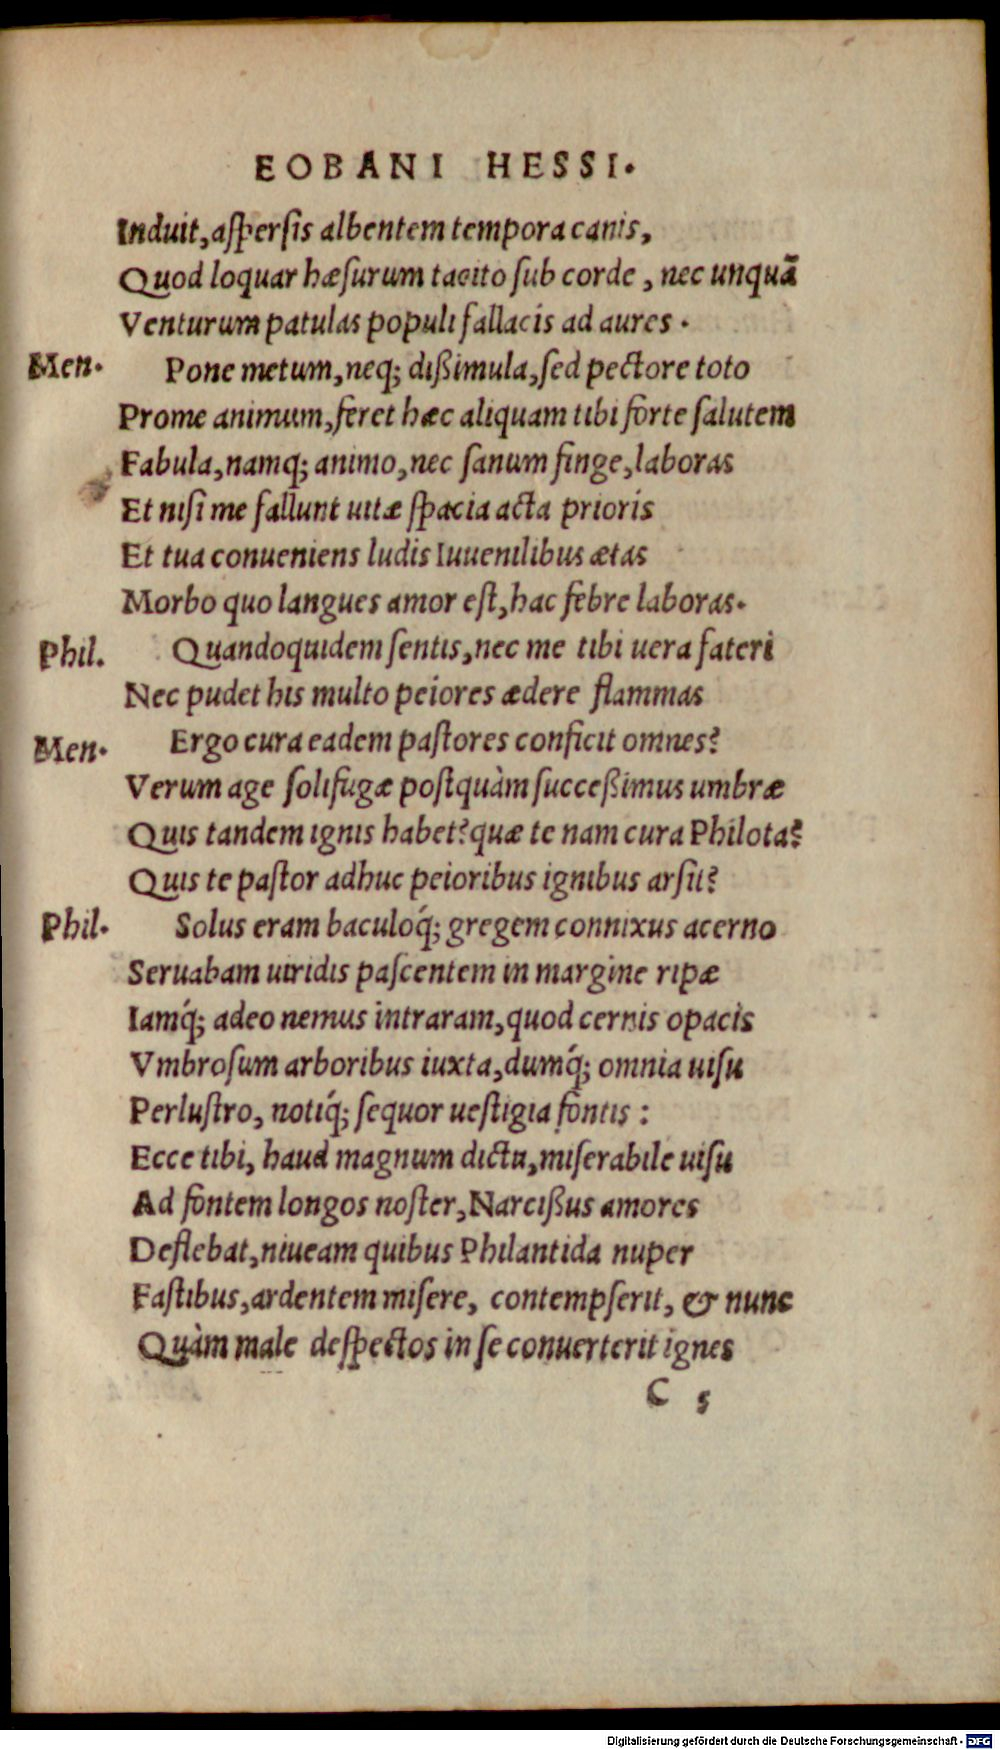 EOBANI HESSI.
Induit, aſperſis albentem tempora canis,
Quod loquar hæſurum tacito ſub corde, nec unquā
Venturum patulas populi fallacis ad aures.
Men. Pone metum, neq; dißimula, ſed pectore toto
Prome animum, feret hæc aliquam tibi forte ſalutem
Fabula, namq; animo, nec ſanum finge, laboras
Et niſi me fallunt uitæ ſpacia acta prioris
Et tua conueniens ludis Iuuenilibus ætas
Morbo quo langues amor eſt, hac febre laboras.
Phil. Quandoquidem ſentis, nec me tibi uera fateri
Nec pudet his multo peiores ædere flammas
Men. Ergo cura eadem paſtores conficit omnes?
Verum age ſolifugæ poſtquàm ſucceßimus umbræ
Quis tandem ignis habet? quæ te nam cura Philota?
Quis te paſtor adhuc peioribus ignibus arſit?
Phil. Solus eram baculoq́; gregem connixus acerno
Seruabam uiridis paſcentem in margine ripæ
Iamq́; adeo nemus intraram, quod cernis opacis
Vmbroſum arboribus iuxta, dumq́; omnia uiſu
Perluſtro, notiq́; ſequor ueſtigia fontis:
Ecce tibi, haud magnum dictu, miſerabile uiſu
Ad fontem longos noſter, Narcißus amores
Deflebat, niueam quibus Philantida nuper
Faſtibus, ardentem miſere, contempſerit, & nunc
Quàm male deſpectos in ſe conuerterit ignes
C 5
Digitalisierung gefördert durch die Deutsche Forschungsgemeinschaft - DFG